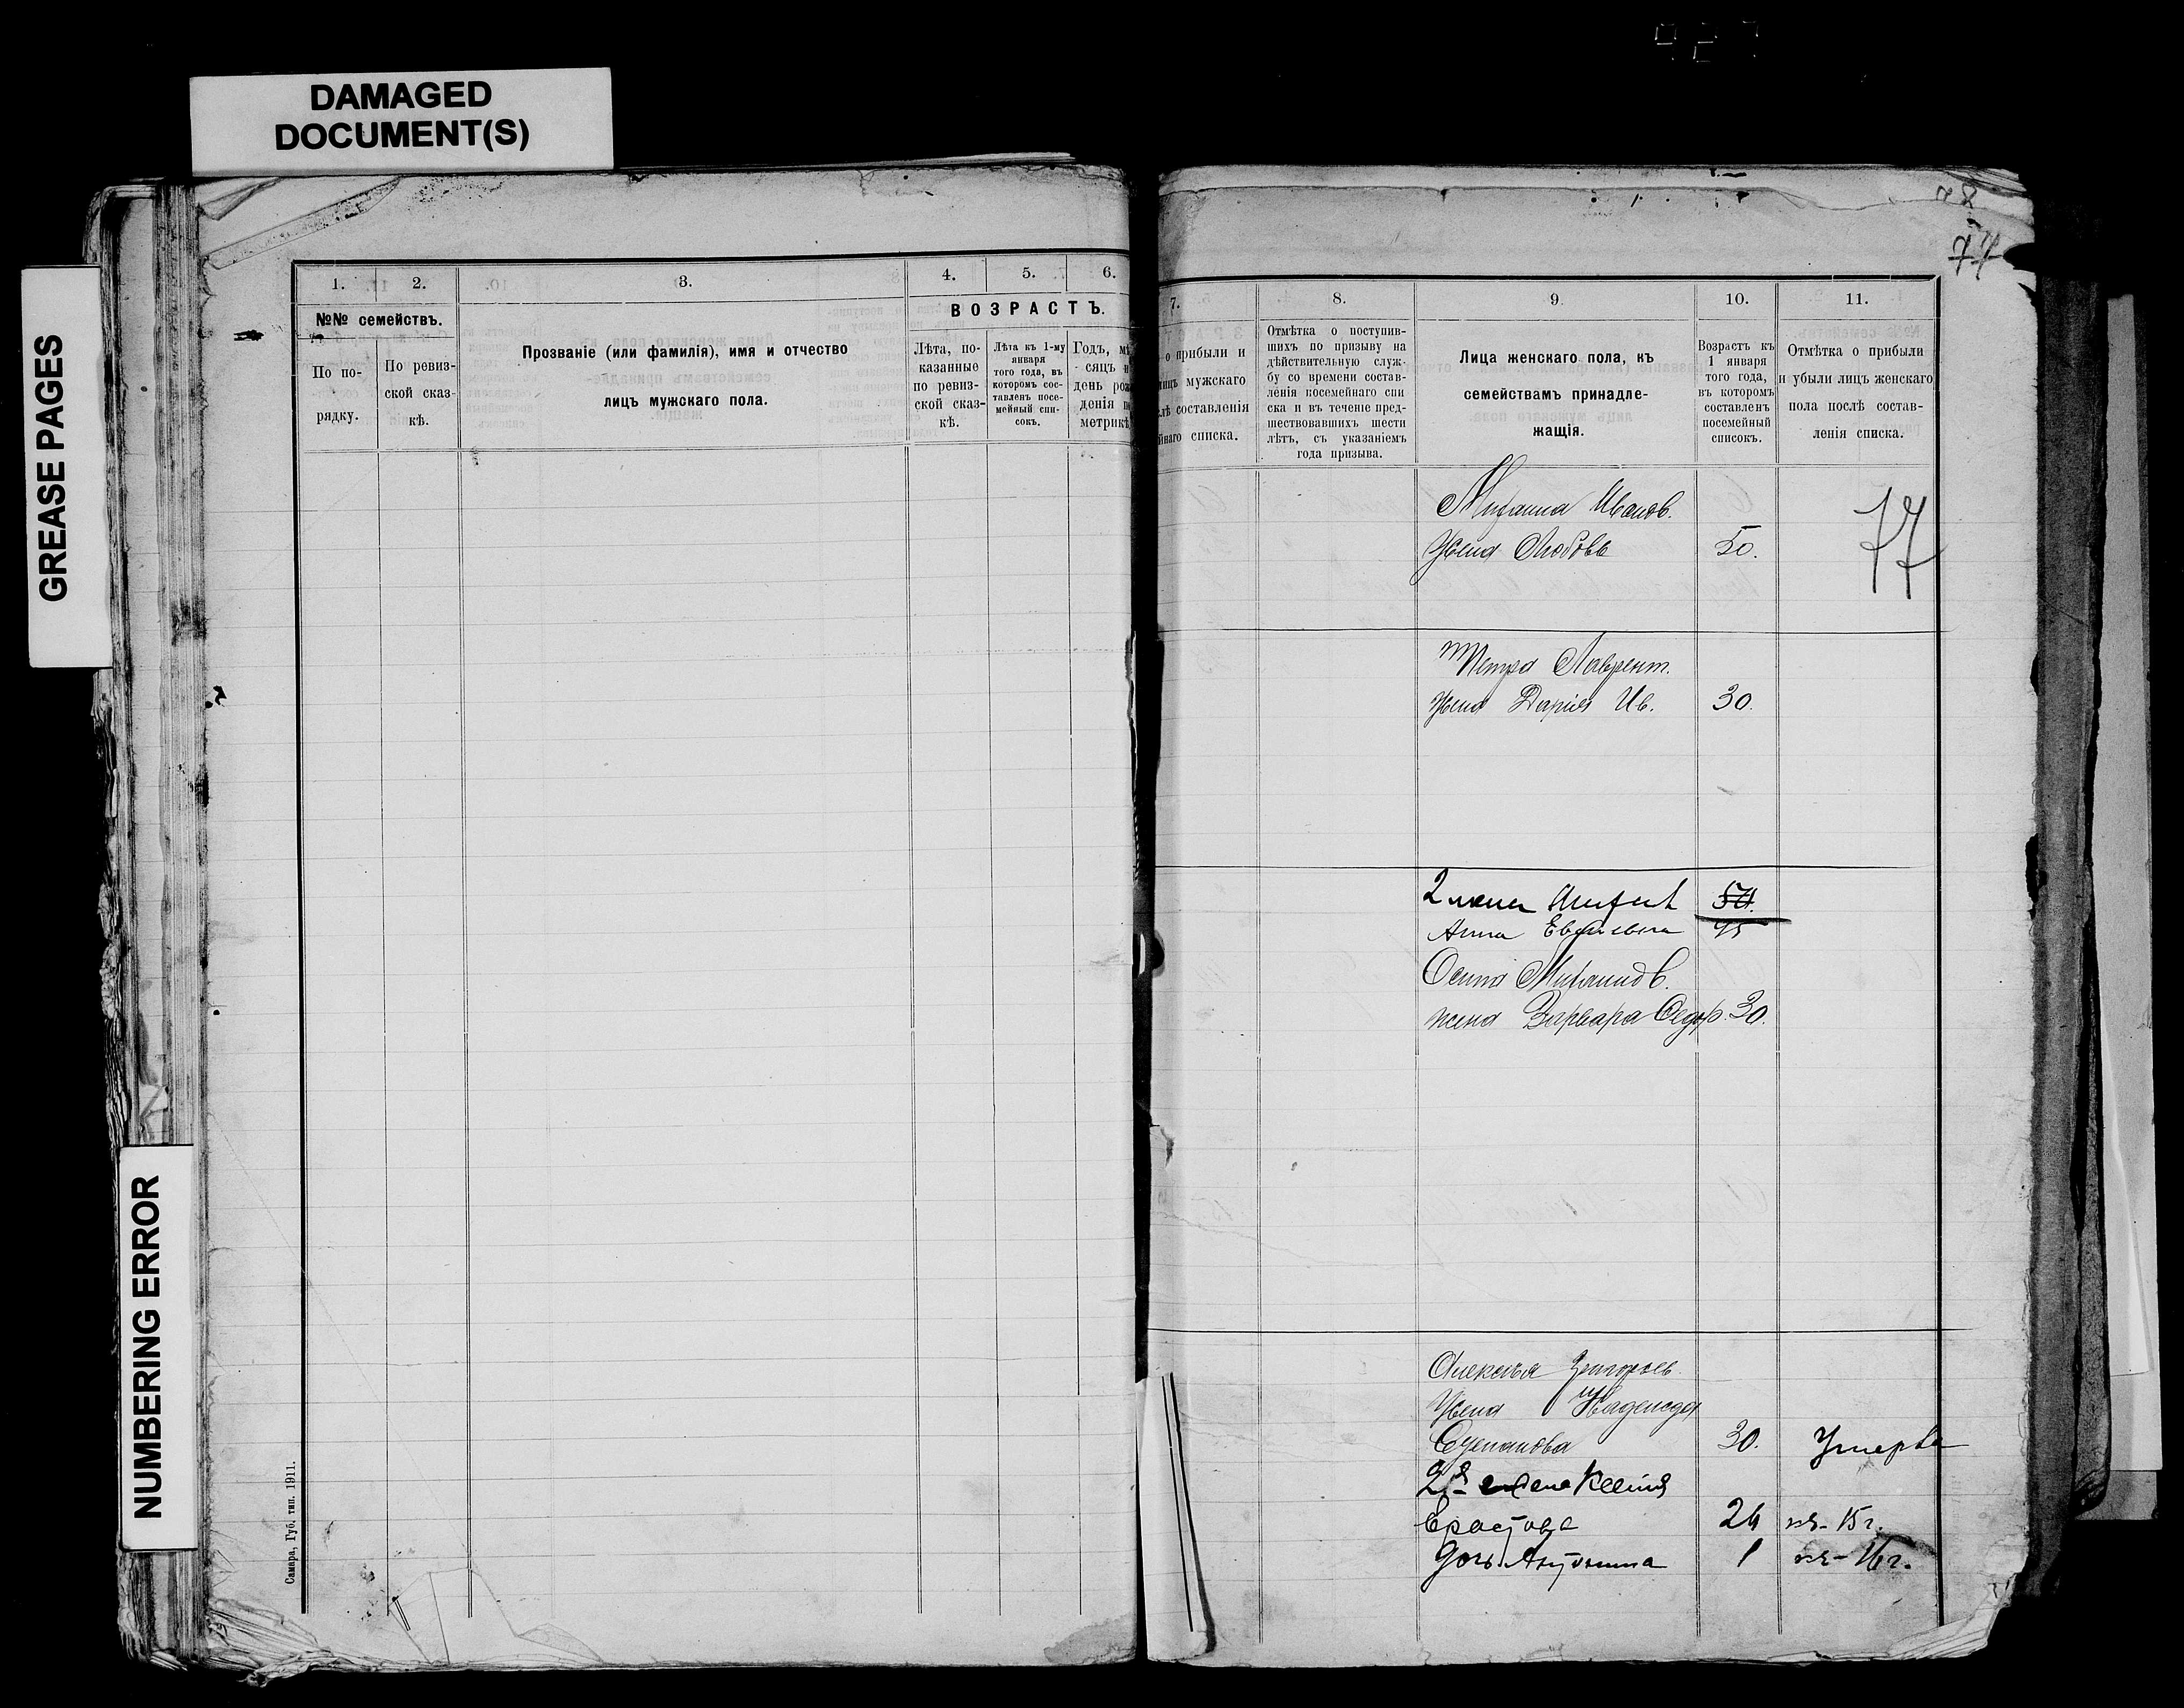 DAMAGED
DOCUMENT(S)
GREASE PAGES
NUMBERING ERROR
1. 2. 3. 4. 5. 6.
№№ семействъ.
По по-
рядку.
По ревиз-
ской сказ-
кѣ.
Прозваніе (или фамилія), имя и отчество
лицъ мужскаго пола.
ВОЗРАСТЪ.
Лѣта, по-
казанные
по ревиз-
ской сказ-
кѣ.
Лѣта къ 1-му
января
того года, въ
которомъ сос-
тавленъ посе-
мейный спи-
сокъ.
Годъ, мѣ
сяцъ и
день рож
денія по
метрикѣ
Самара, Губ. тип. 1911.
78
77
7. 8. 9. 10. 11.
о прибыли и
лицъ мужского
слѣ составленія
йнаго списка.
Отмѣтка о поступив-
шихъ по призыву на
дѣйствительную служ-
бу со времени состав-
ленія посемейнаго спи
ска и въ теченіе пред-
шествовавшихъ шести
лѣтъ, съ указаніемъ
года призыва.
Лица женскаго пола, къ
семействамъ принадле-
жащія.
Возрастъ къ
1 января
того года,
въ которомъ
составленъ
посемейный
списокъ.
Отмѣтка о прибыли
и убыли лицъ женскаго
пола послѣ состав-
ленія списка.
Михаила Иванов.
Жена Любовь 50.
77
Петра Лаврент.
Жена Дарія Ив. 30.
2 жена
Анна 45
Осипа Михаилов.
жена Варвара Федор. 30.
Алексѣя Григорьев.
Жена Надежда
Степанова 30. Умерла
2я жена Ксенія
Ерастова 24 15 г.
Дочь Антонина 1 16 г.